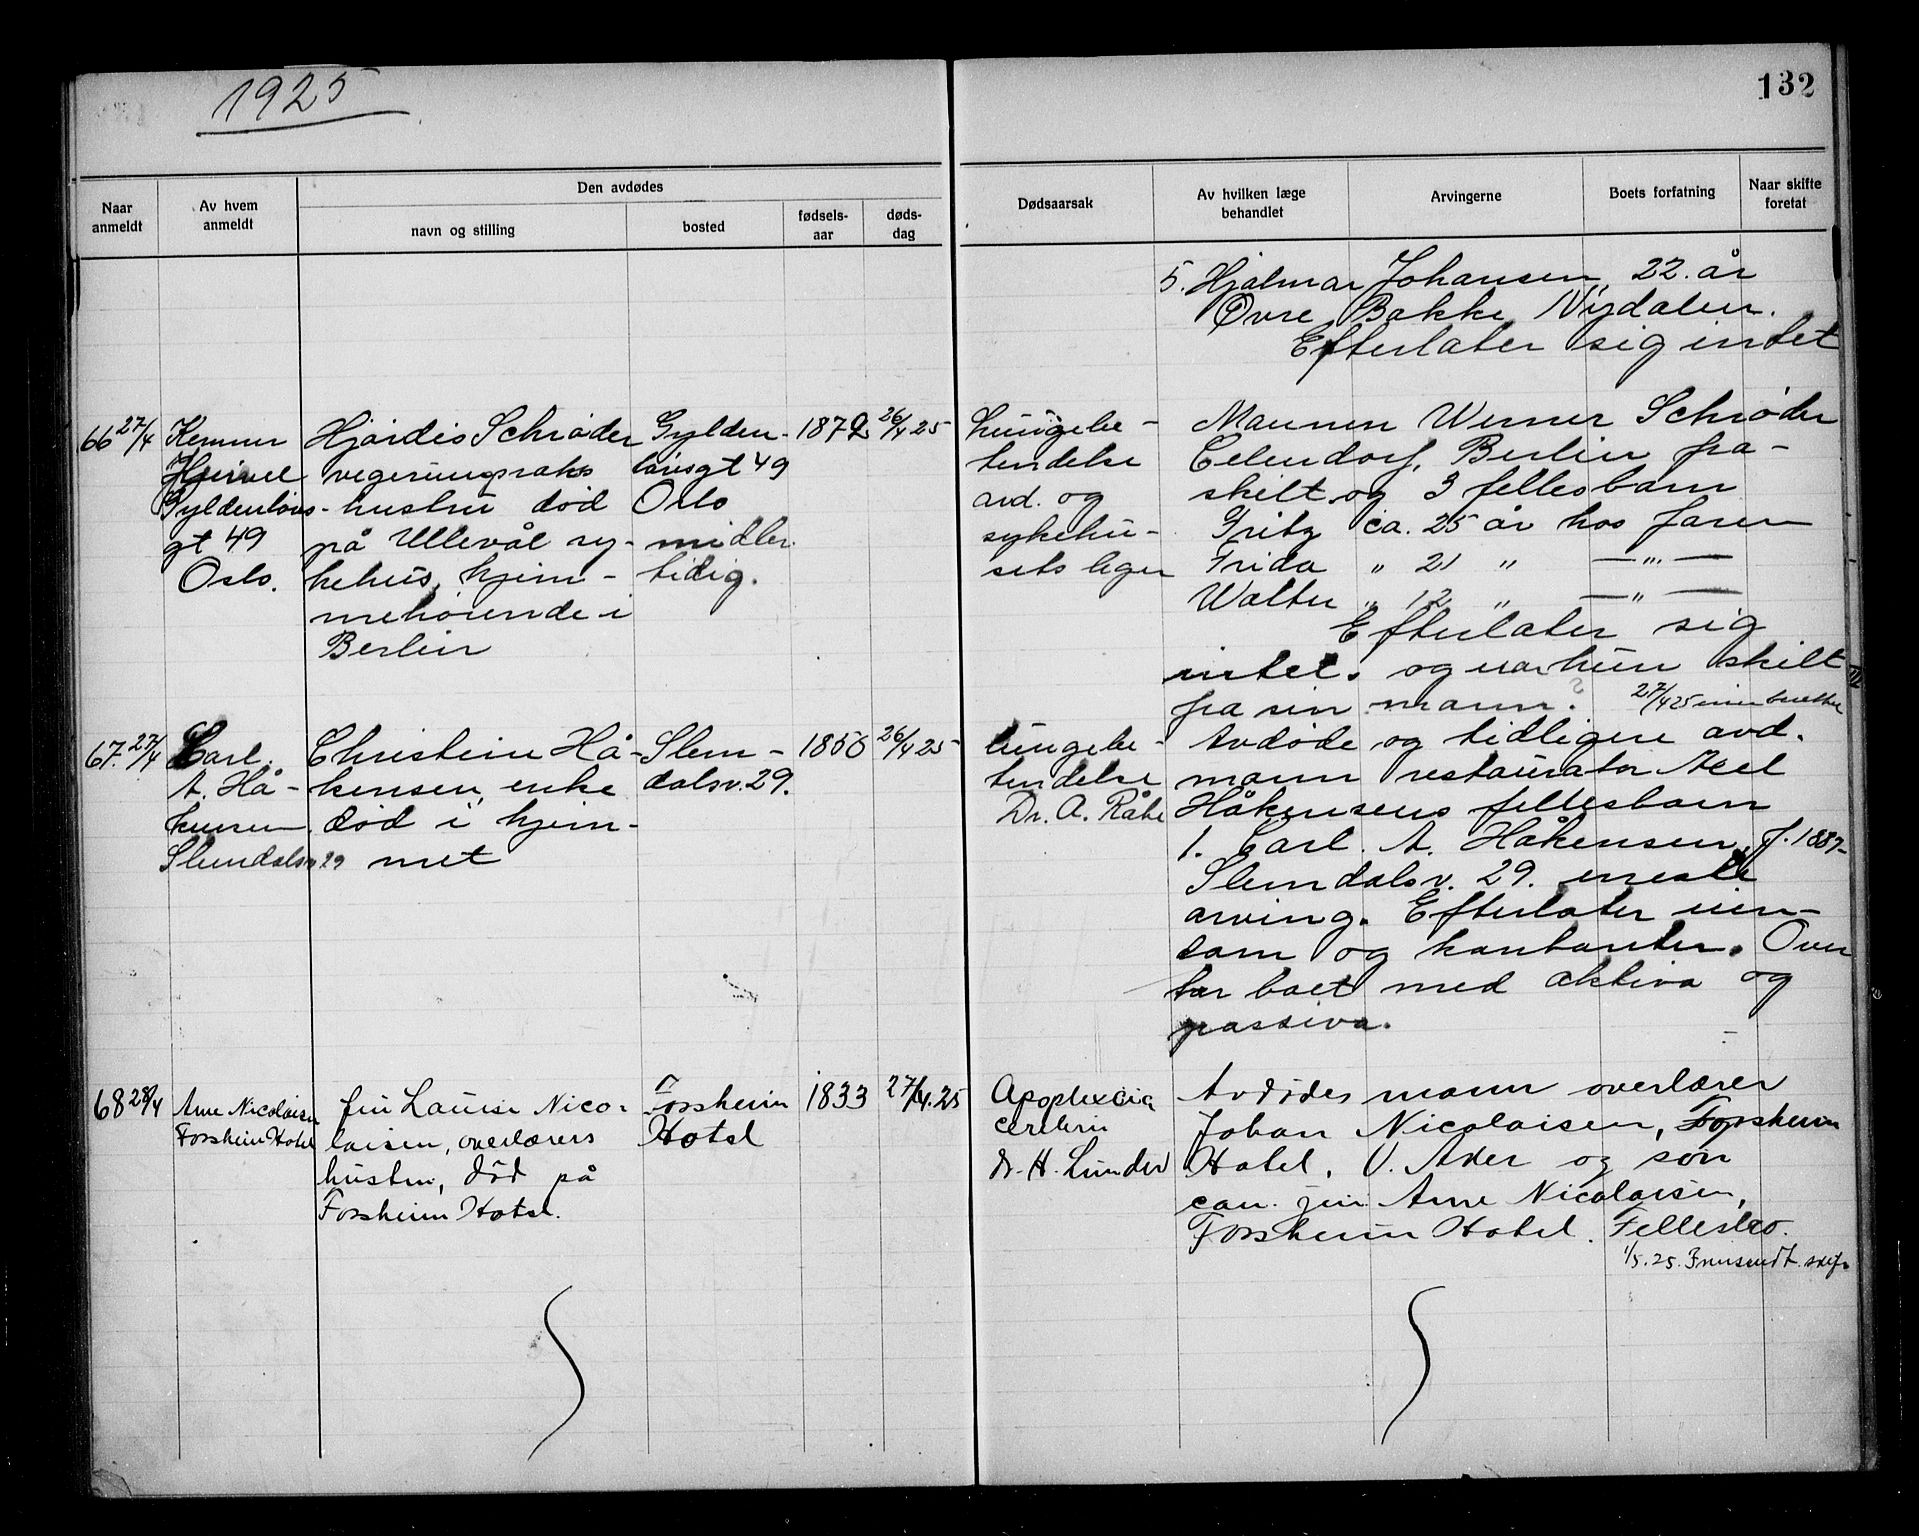 1925
132
Naar anmeldt
Av hvem anmeldt
Den avdødes
navn og stilling
bosted
fødsels-aar
døds-dag
Dødsaarsak
Av hvilken læge behandlet
Arvingerne
Boets forfatning
Naar skifte foretat
5. Hjalmar Johansen, 22. år
Øvre Bakke Nydalen.
Efterlater sig intet
66 27/4
Gyldenløvs-
gt 49
Oslo.
Hjørdis Schrøder
hustru død
på Ullevål sy-
kehus, hjem-
mehörende i
Berlin
Gylden-
løvsgt 49
Oslo
midler-
tidig.
1872
26/4 25
lungebe-
tendelse
avd. og
sykehu-
sets leger
Mannen Werner Schrøder
Berlin fra-
skilt og 3 fellesbarn
Fritz ca. 25 år hos faren
Frida " 21 " — " —
Walter " 12 " — " —
Efterlater sig
intet. og var hun skilt
fra sin mann?
27/4 25
67. 27/4
Carl.
A. Hå-
kensen
Slemdalsv 29
Christein Hå-
kensen, enke
död i hjem-
met
Slem-
dalsv. 29.
26/4 25
lungebe-
tendelse
Dr. A. Råbe
Avdöde og tidligere avd.
mann restauratör Axel
Håkensens fellesbarn
1. Carl. A. Håkensen, f. 1887-
Slemdalsv. 29. eneste
arving. Efterlater uen-
som og kontanter. Over
tar boet med aktiva og
passiva.
68 28/4
Arne Nicolaisen
Forsheim Hotel
fru Lauise Nico-
laisen, overlærers
hustru, død på
Forsheim Hotel.
Forsheim
Hotel
1833
27/4.25
Apoplexia
cerebri
dr. H. Lunder
Avdödes mann overlærer
Johan Nicolaisen, Forsheim
Hotel, V. Aker og sön
can. jur. Arne Nicolaisen,
Forsheim Hotel. Fellesbo.
1/5. 25.